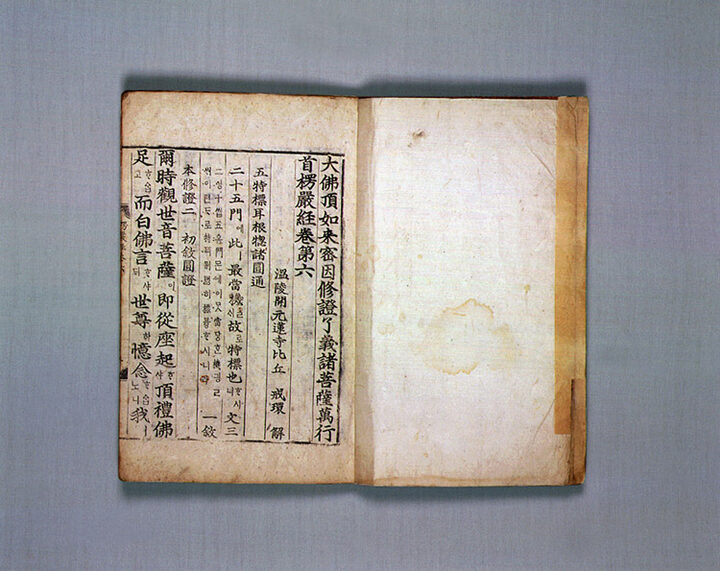 大佛頂如来密因修證了義諸菩薩萬行
首楞嚴経卷第六
溫陵開元蓮寺比丘 戒環 解
五特標耳根惣諸圓通
二十五門에 此ㅣ 最當機 故로 特標也ᄒᆞ시니 文三 一敘
本修證二 初敘圓證
爾時觀世音菩薩이 即從座起ᄒᆞ샤 頂禮佛
足ᄒᆞᅀᆞᆸ고 而白佛言ᄒᆞ샤ᄃᆡ 世尊하 憶念ᄒᆞᅀᆞᆸ노니 我ㅣ